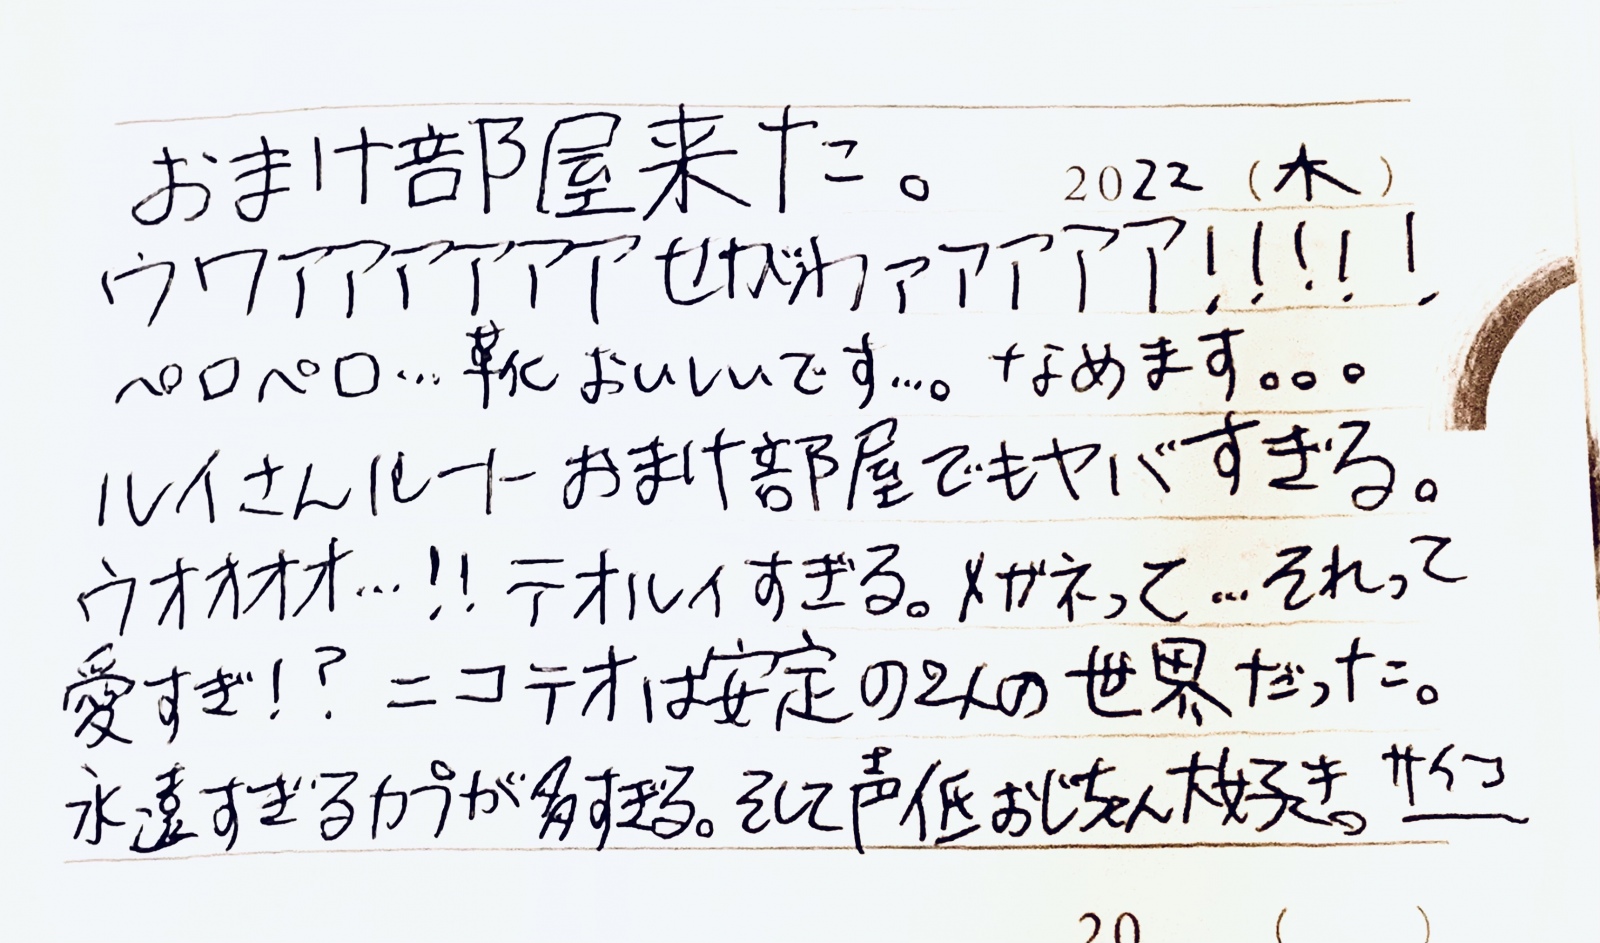 おまけ部屋来た。 2022 (木)
ウワァアアアアアア せがわァアアアアア!!!!!
ペロペロ…靴おいしいです…。なめます。。。
ルイさんルートおまけ部屋でもヤバすぎる。
ウオオオオ…!! テオルイすぎる。メガネって…それって
愛すぎ!? ニコテオは安定の2人の世界だった。
永遠すぎるカプが多すぎる。そして声低おじちゃん大好き。サイコー
20 ( )